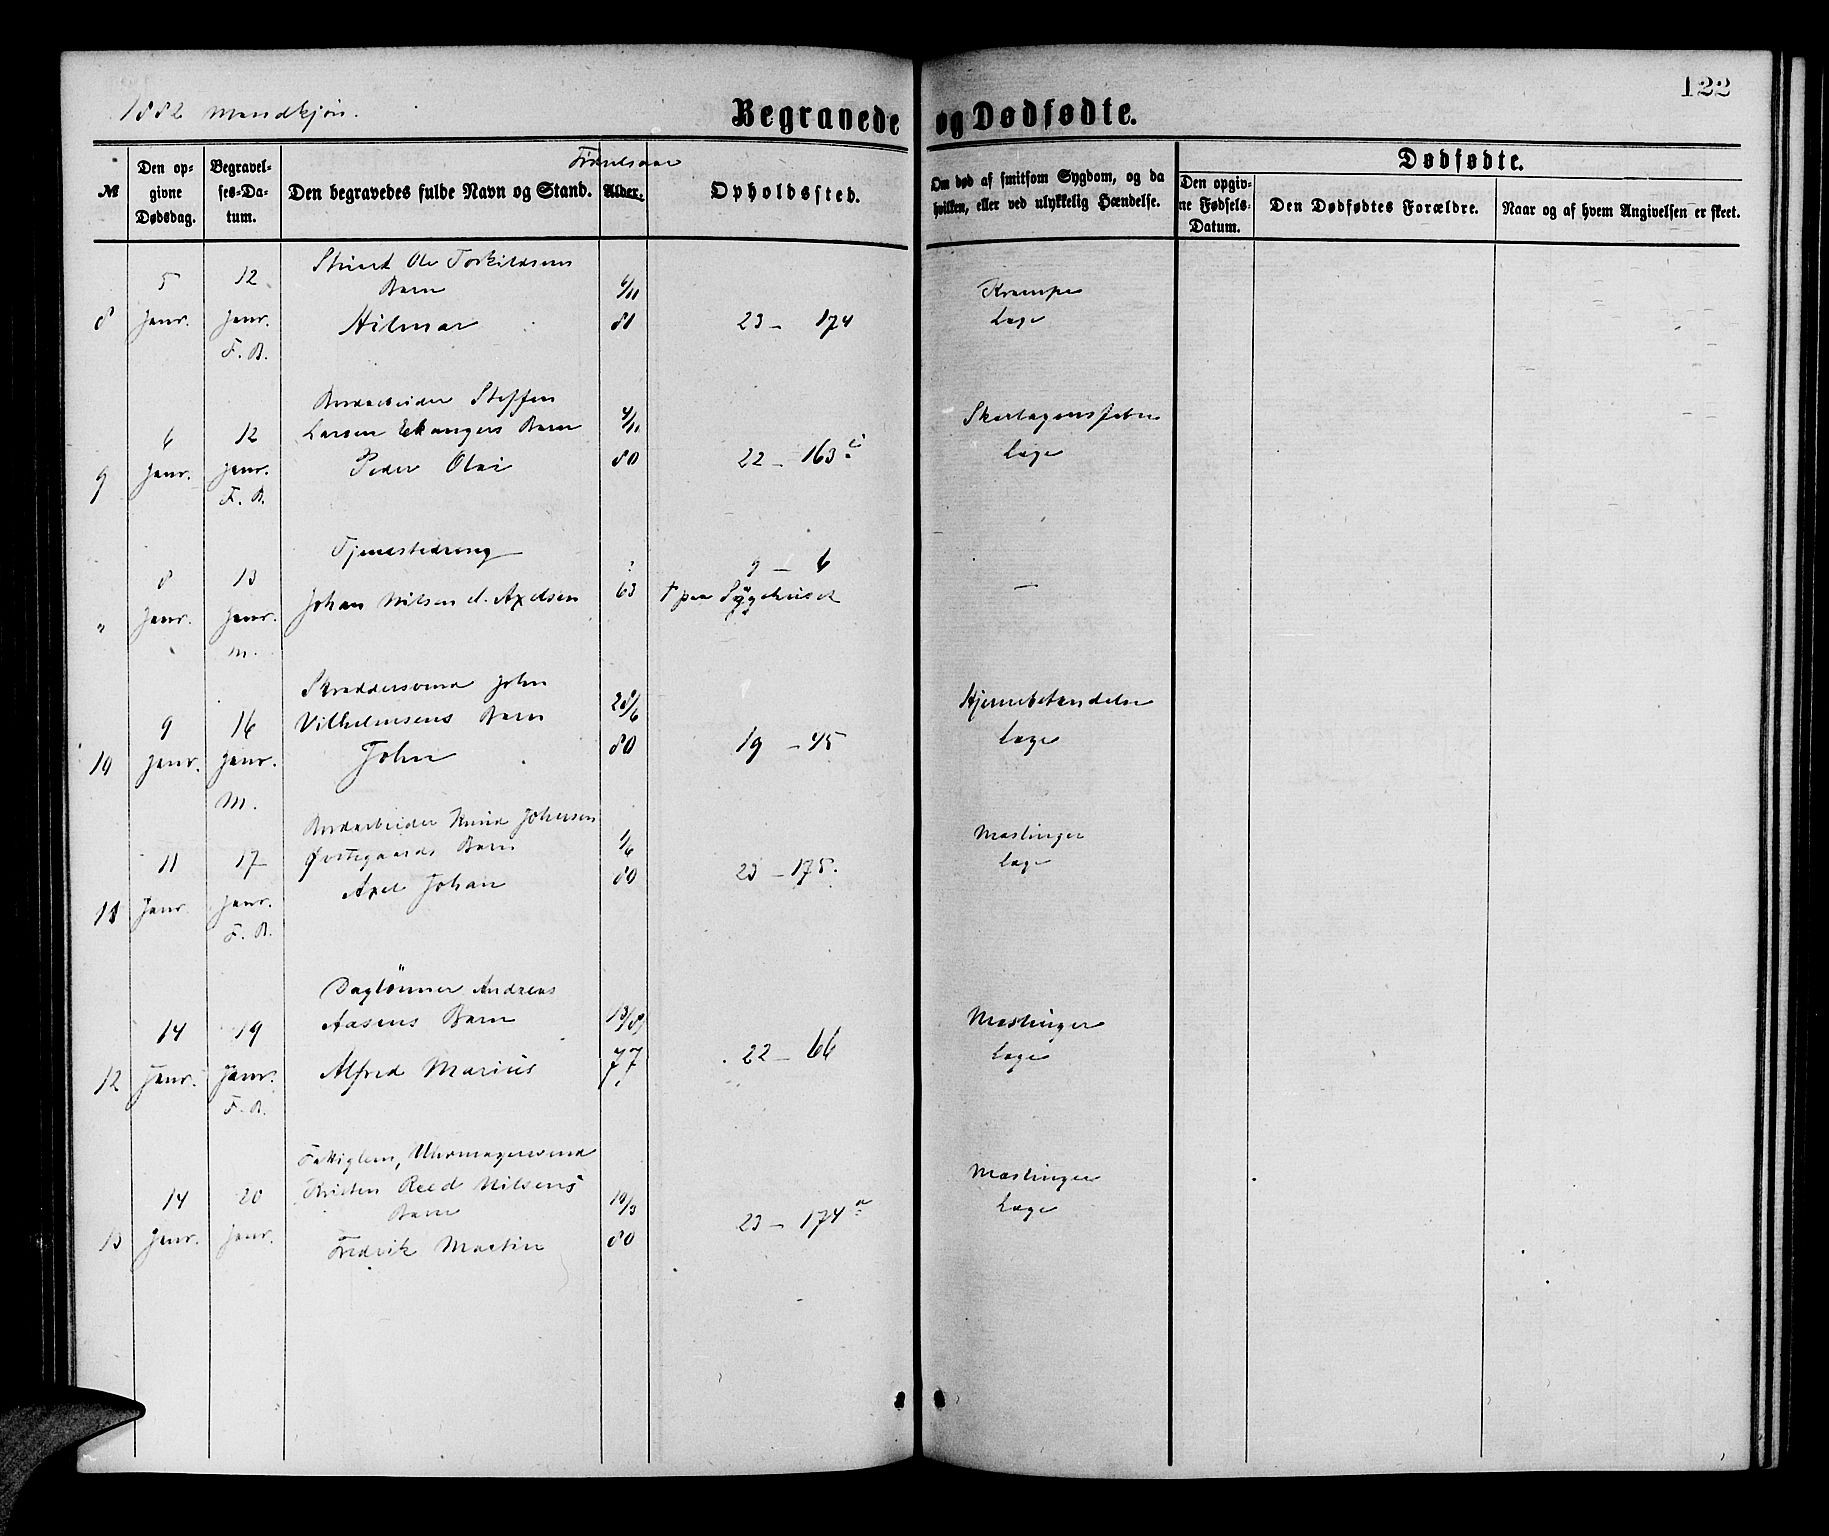 122
1882 Mandkjøn.
Begravede og Dødfødte.
№
Den opgivne Dødsdag.
Begravelses-Datum.
Den begravedes fulde Navn og Stand.
Fødselsaar
Alder.
Opholdssted.
Om død af smitsom Sygdom, og da hvilken, eller ved ulykkelig Hændelse.
Dødfødte.
Den opgivne Fødsels-Datum.
Den Dødfødtes Forældre.
Naar og af hvem Angivelsen er skeet.
8
5 Janr.
12 Janr. F. B.
Ole Torkildsens
Barn
Hilmar
6/11 81
23 - 174
Krampe
Læge
9
6 Janr.
12 Janr. F. B.
Bordarbeider Steffen
Larsen Ekangers Barn
Peder Olai
4/11 80
22 - 163
Skarlagensfeber
Læge
"
8 Janr.
13 Janr. M.
Tjenestedreng
Johan Nilsen el. Axelsen
? 63
9 - 6
† paa Sygehuset
—
10
9 Janr.
16 Janr. M.
Skræddersvend John
Vilhelmsens Barn
John
28/6 80
19 - 45
Hjernebetændelse
Læge
11
11 Janr.
17 Janr. F. B.
Bordarbeider Knud Johnsen
Østegaards Barn
Axel Johan
1/6 80
23 - 175.
Mæslinger
Læge
12
14 Janr.
19 Janr. F. B.
Daglönner Andreas
Aasens Barn
Alfred Marius
13/8 77
22 - 66
Mæslinger
Læge
13
14 Janr.
20 Janr.
Fattiglem, Uhrmagersvend
Kristen Reed Nilsens
Barn
Fredrik Martin
19/3 80
23 - 174 a
Mæslinger
Læge